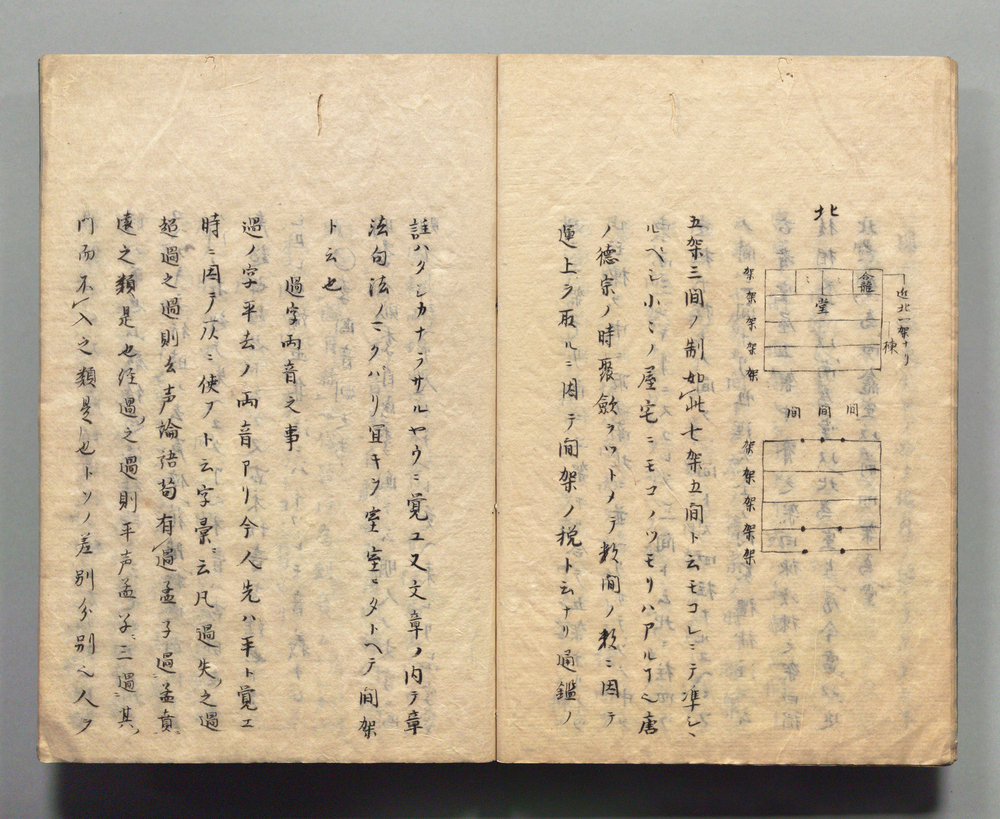 北
近北一架ナリ
棟
龕
堂
架
架
架
架
架
間 間 間
架
架
架
架
架
五架三間ノ制如此七架五間ト云モコレニテ準シ
ルベシ小ミノ屋宅ニモコノツモリハアルヿ也唐
ノ德宗ノ時聚歛ヲツトメテ数間ノ数ニ因テ
運上ヲ取ルニ因テ間架ノ税ト云ナリ通鑑ノ
註ハタシカナラサルヤウニ覚ユ又文章ノ内テ章
法句法ノミクハリ宜キヲ室室ニタトヘテ間架
ト云也
過字両音之事
過ノ字平去ノ両音アリ今人先ハ平ト覚エ
時ニ因テ仄ニ使フト云字彙ニ云凡過失之過
超過之過則去声論語苟有過孟子過孟賁
遠之類是也経過之過則平声孟子三過其
門而不入之類是也トソノ差別分別也人ヲ